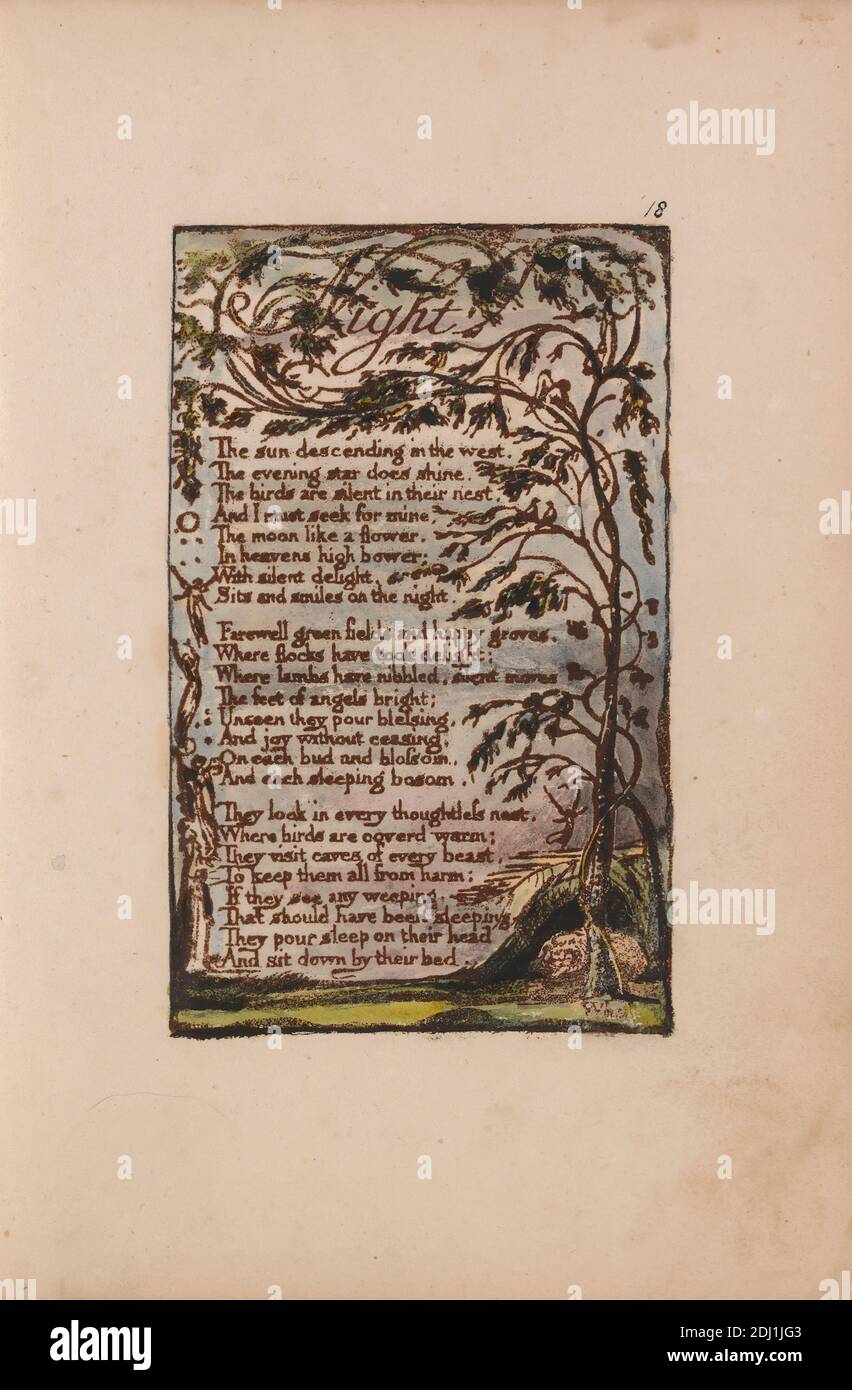 18
Night
The sun descending in the west.
The evening star does shine.
The birds are silent in their nest,
And I must seek for mine,
The moon like a flower,
In heavens high bower;
With silent delight,
Sits and smiles on the night.
Farewell green fields and happy groves,
Where flocks have took delight;
Where lambs have nibbled, silent moves
The feet of angels bright;
Unseen they pour blessing,
And joy without ceasing,
On each bud and blossom,
And each sleeping bosom.
They look in every thoughtless nest,
Where birds are coverd warm;
They visit caves of every beast,
To keep them all from harm;
If they see any weeping,
That should have been sleeping
They pour sleep on their head
And sit down by their bed.
a
alamy
a
alamy
Image ID: 2DJ1JG3
www.alamy.com